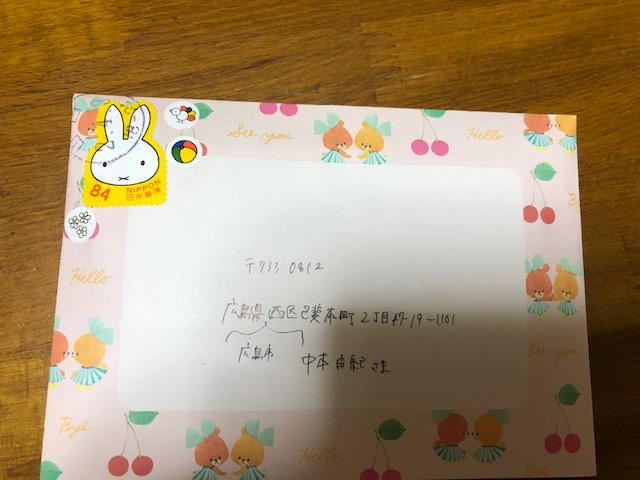 See you
Hello
84
NIPPON
日本郵便
〒733 0812
Hello
広島県西区己斐本町2丁目 19-1101
広島市
中本由紀さま
See you
Bye
Hello
Bye